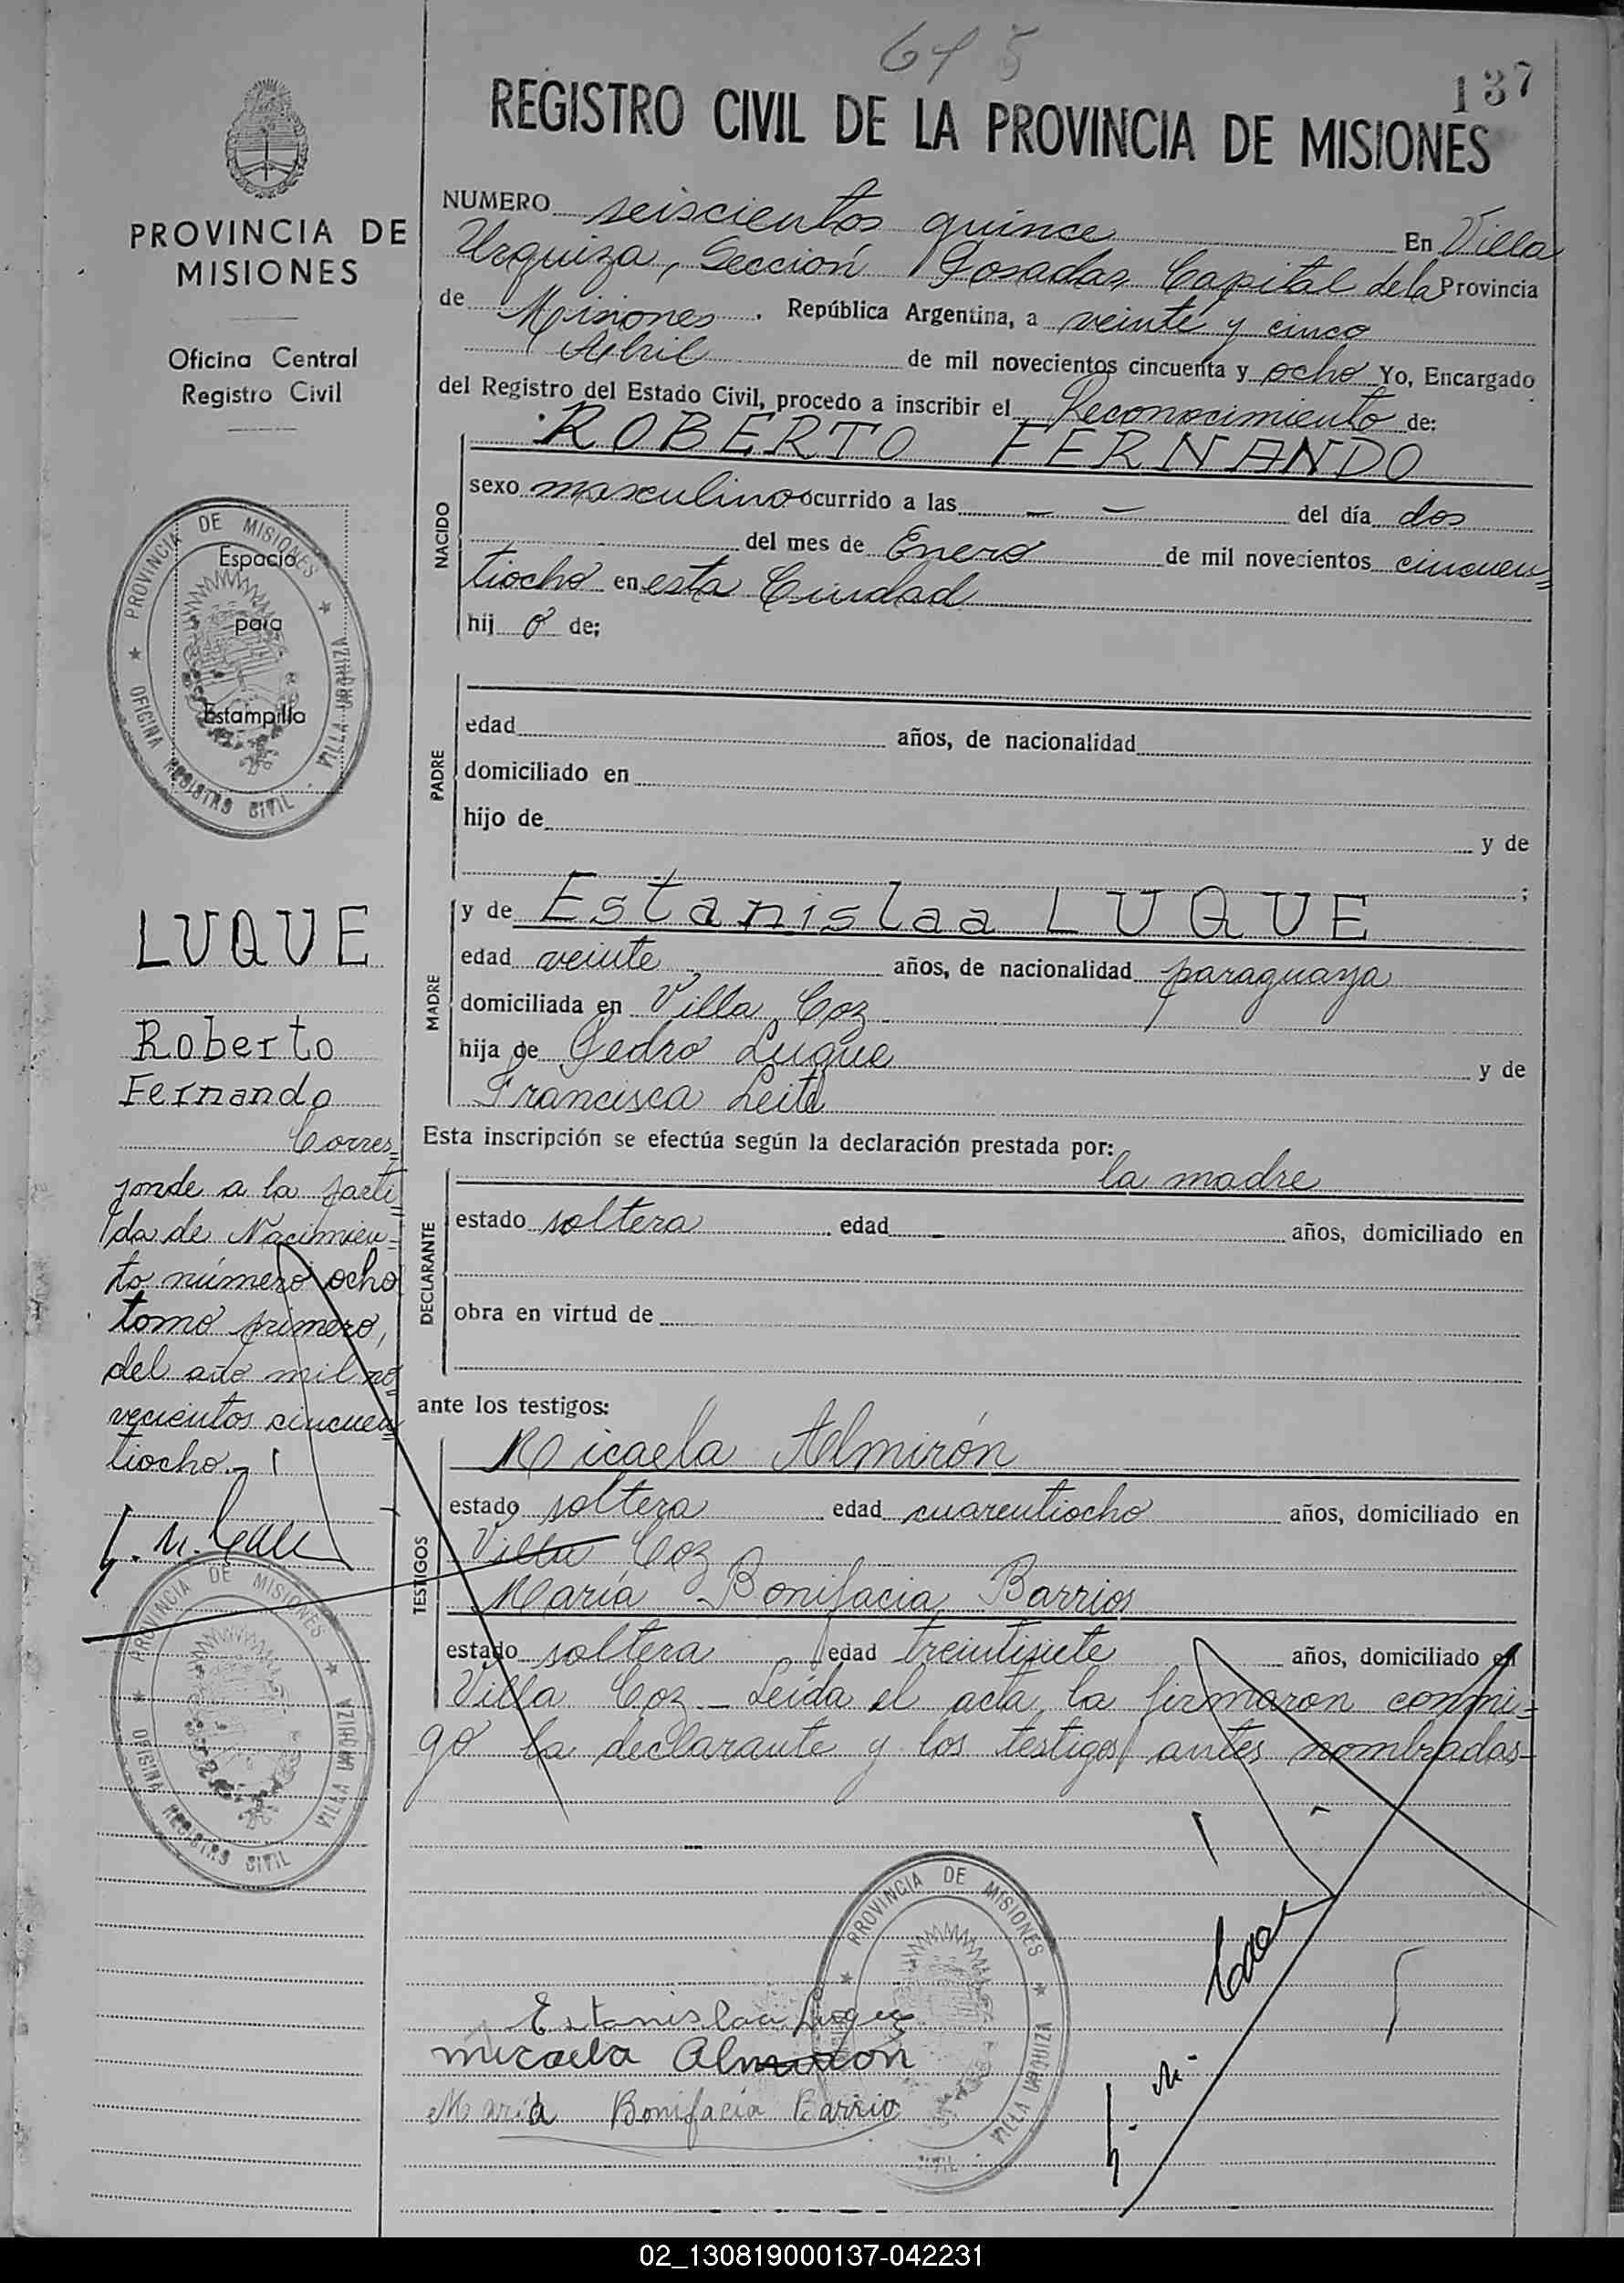 615
137
REGISTRO CIVIL DE LA PROVINCIA DE MISIONES
PROVINCIA DE
MISIONES
Oficina Central
Registro Civil
PROVINCIA DE MISIONES
Espacio
para
Estampilla
OFICINA REGISTRO CIVIL - VILLA URQUIZA
LUQUE
Roberto
Fernando
Corres=
ponde a la parti=
da de Nacimien=
to número ocho
tomo primero,
del año mil no=
vecientos cincuen=
tiocho.-
PROVINCIA DE MISIONES
OFICINA REGISTRO CIVIL - VILLA URQUIZA
NUMERO seiscientos quince En Villa
Urquiza, Sección Posadas, Capital de la Provincia
de Misiones. República Argentina, a veinte y cinco
Abril de mil novecientos cincuenta y ocho Yo, Encargado
del Registro del Estado Civil, procedo a inscribir el Reconocimiento de:
NACIDO
ROBERTO FERNANDO
sexo masculino ocurrido a las - - del día dos
del mes de Enero de mil novecientos cincuen=
tiocho en esta Ciudad
hij o de;
PADRE
edad años, de nacionalidad
domiciliado en
hijo de y de
;
MADRE
y de Estanislaa LUQUE
edad veinte años, de nacionalidad paraguaya
domiciliada en Villa Coz
hija de Pedro Luque y de
Francisca Leite
Esta inscripción se efectúa según la declaración prestada por:
DECLARANTE
la madre
estado soltera edad - años, domiciliado en
obra en virtud de
ante los testigos:
TESTIGOS
Micaela Almirón
estado soltera edad cuarentiocho años, domiciliado en
Villa Coz
María Bonifacia Barrios
estado soltera edad treintisiete años, domiciliado en
Villa Coz - Leída el acta, la firmaron conmi=
go la declarante y los testigos antes nombradas-
PROVINCIA DE MISIONES
VILLA URQUIZA
Estanislaa Luque
micaela Almiron
Maria Bonifacia Barrio
02_130819000137-042231